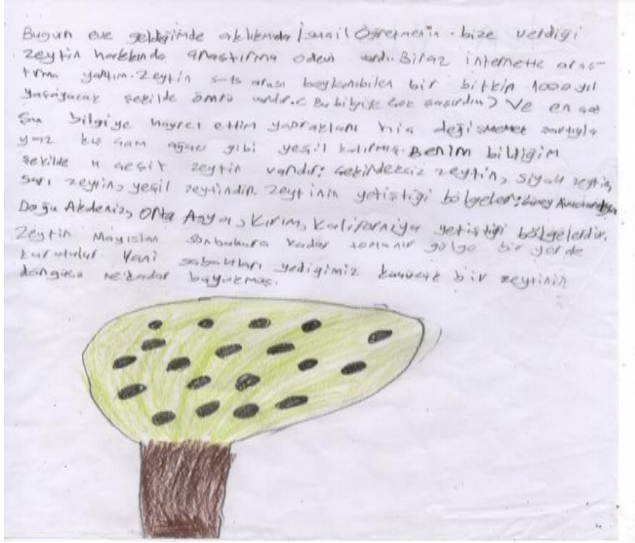 Bugün eve geldiğimde aklımda İsmail Öğretmenin bize verdiği
zeytin hakkında araştırma ödevi vardı. Biraz internette araş-
tırma yaptım. Zeytin arası bir bitkin 1000 yıl
yaşayacak şekilde ömrü vardır. (Bu bilgiye çok şaşırdım) Ve en çok
şu bilgiye hayret ettim yaprakları hiç değişmemek şartıyla
yaz kış çam ağacı gibi yeşil kalırmış. Benim bildiğim
şekilde 4 çeşit zeytin vardır: çekirdeksiz zeytin, siyah zeytin,
sarı zeytin, yeşil zeytindir. Zeytinin yetiştiği bölgeler: Güney
Doğu Akdeniz, Orta Asya, Kırım, Kaliforniya yetiştiği bölgelerdir.
Zeytin Mayıstan sonbahara kadar toplanır gölge bir yerde
kurutulur Yani sabahları yediğimiz küçücük bir zeytinin
döngüsü ne kadar büyükmüş.